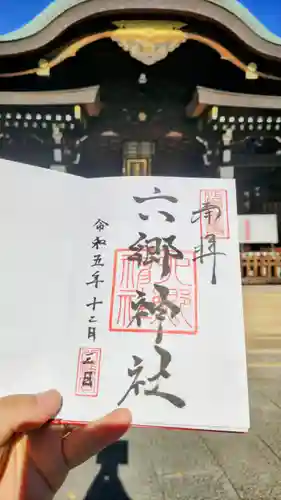 奉拝
六郷神社
令和五年十二月
三日